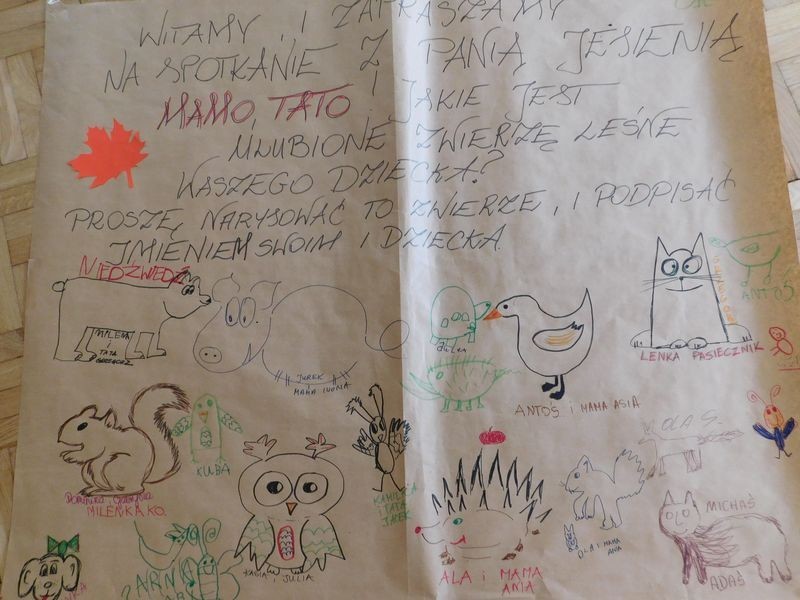 WITAMY , I ZAPRASZAMY
NA SPOTKANIE Z PANIĄ JESIENIĄ
MAMO, TATO ! JAKIE JEST
ULUBIONE ZWIERZĘ LEŚNE
WASZEGO DZIECKA?
PROSZĘ, NARYSOWAĆ TO ZWIERZE, I PODPISAĆ
IMIENIEM SWOIM I DZIECKA
NIEDŹWEDŹ
MILENA
TATA
GRZEGORZ
JUREK
MAMA IWONA
JULKA
ANTOŚ I MAMA ASIA
LENKA PASIECZNIK
ANTOŚ
DOMINIKA
MILENKA KO.
KUBA
KASIA I JULIA
KAMILKA
I TATA
JAREK
ALA I MAMA
ANIA
OLA I MAMA
ANIA
OLA S.
MICHAŚ
ADAŚ